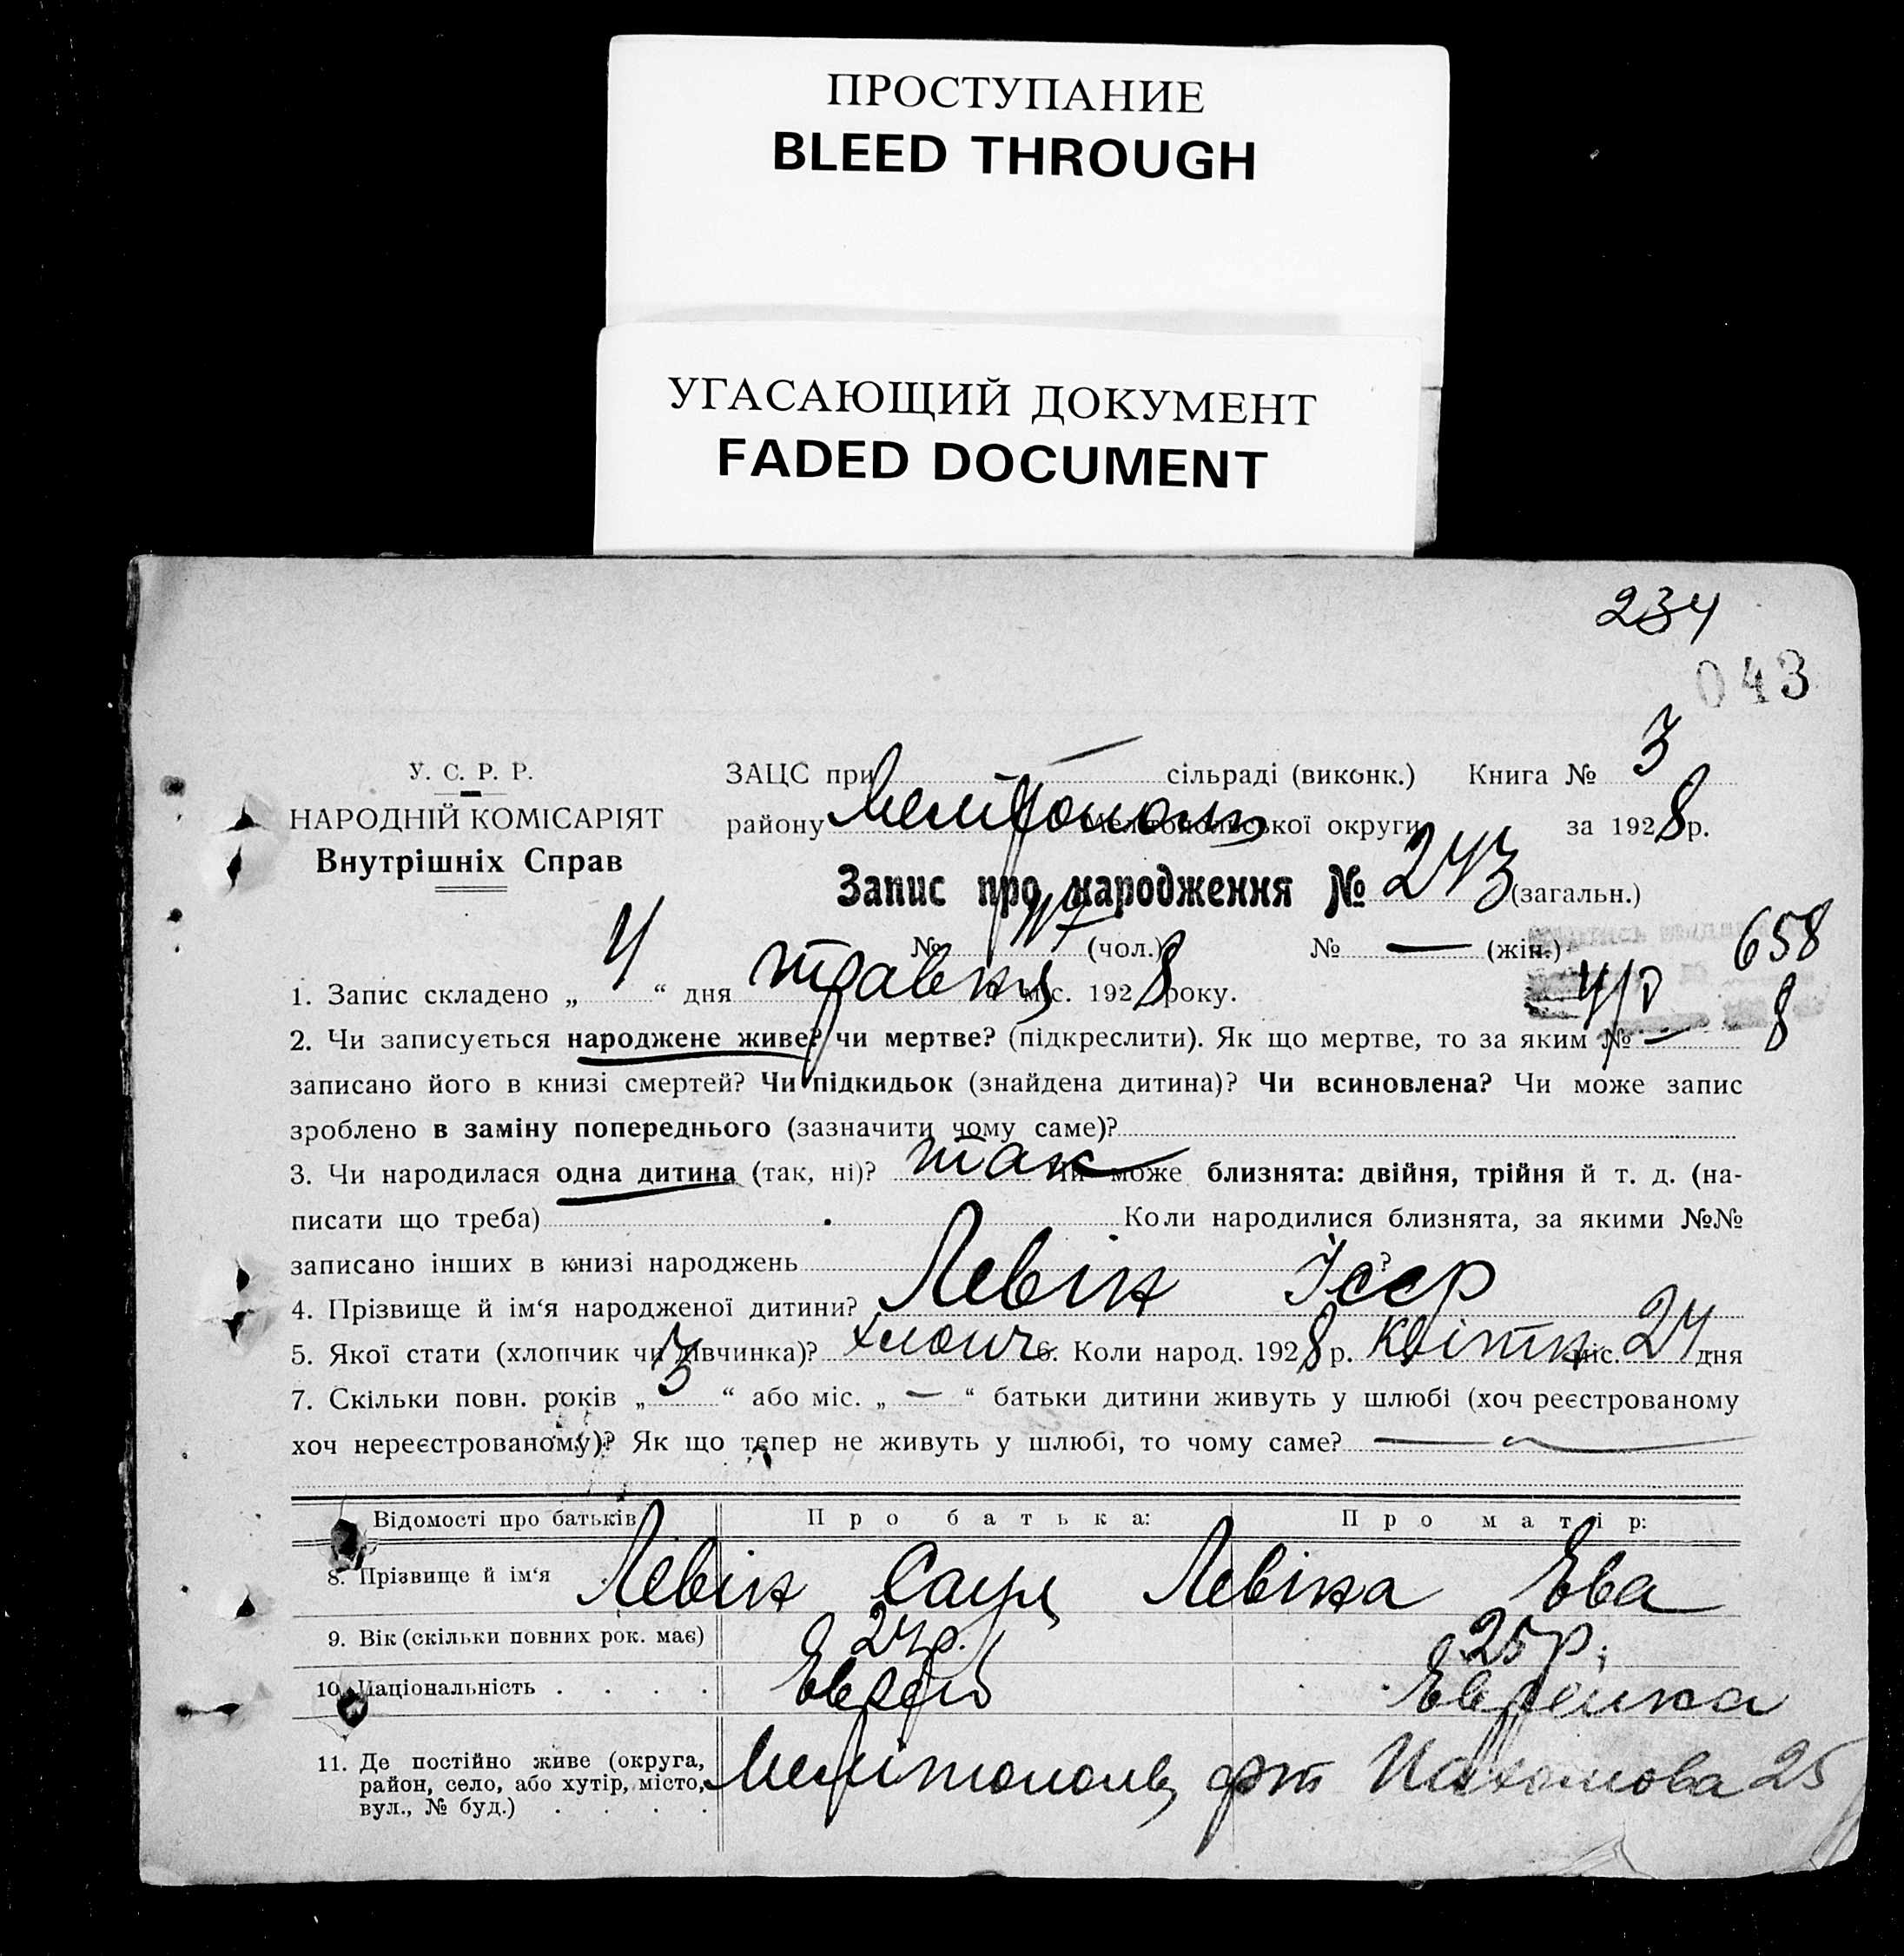 ПРОСТУПАНИЕ
BLEED THROUGH
УГАСАЮЩИЙ ДОКУМЕНТ
FADED DOCUMENT
234
043
У. С. Р. Р.
НАРОДНІЙ КОМІСАРІЯТ
Внутрішніх Справ
ЗАЦС при — сільраді (виконк.) Книга № 3
району Мелітополь Мелітопольської округи за 1928 р.
Запис про народження № 243 (загальн.)
№ (чол.) № — (жін.)
658
8
1. Запис складено „ 4 “ дня травня міс. 1928 року.
2. Чи записується народжене живе? чи мертве? (підкреслити). Як що мертве, то за яким № —
записано його в книзі смертей? Чи підкидьок (знайдена дитина)? Чи всиновлена? Чи може запис
зроблено в заміну попереднього (зазначити чому саме)?
3. Чи народилася одна дитина (так, ні)? так Чи може близнята: двійня, трійня й т. д. (на-
писати що треба) Коли народилися близнята, за якими №№
записано інших в книзі народжень ?
4. Прізвище й ім‘я народженої дитини? Левін Ісєр
5. Якої стати (хлопчик чи дівчинка)? хлопч 6. Коли народ. 1928 р. квітня міс. 24 дня
7. Скільки повн. років „ 3 “ або міс. „ — “ батьки дитини живуть у шлюбі (хоч реєстрованому
хоч нереєстрованому)? Як що тепер не живуть у шлюбі, то чому саме? —
Відомості про батьків Про батька: Про матір:
8. Прізвище й ім‘я Левін Саул Левіна Ева
9. Вік (скільки повних рок. має) 27р. 25р.
10. Національність . . . . Еврей Еврейка
11. Де постійно живе (округа,
район, село, або хутір, місто,
вул., № буд.) . . . . Мелітополь 25